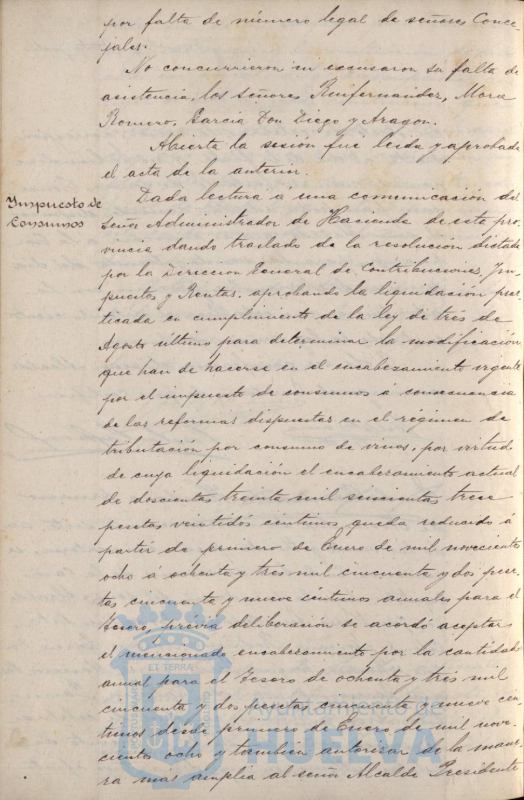 por falta de número legal de señores Conce-
jales.
No concurrieron ni excusaron su falta de
asistencia, los señores Ruifernandez, Mora
Romero, Garcia Don Diego y Aragon.
Abierta la sesión fue leida y aprobada
el acta de la anterior.
Impuesto de
Consumos
Dada lectura á una comunicación del
Señor Administrador de Hacienda de esta pro-
vincia dando traslado de la resolución dictada
por la Direccion General de Contribuciones, Im-
puestos y Rentas, aprobando la liquidación prac-
ticada en cumplimiento de la ley de tres de
Agosto último para determinar la modificación
que han de hacerse en el encabezamiento vigente
por el impuesto de consumos á consecuencia
de las reformas dispuestas en el régimen de
tributación por consumo de vinos, por virtud
de cuya liquidación el encabezamiento actual
de doscientas treinta mil seiscientas trece
pesetas veintidós céntimos, queda reducido á
partir de primero de Enero de mil novecientos
ocho á ochenta y tres mil cincuenta y dos pese-
tas cincuenta y nueve céntimos anuales para el
Tesoro, previa deliberación se acordó aceptar
el mencionado encabezamiento por la cantidad
anual para el Tesoro de ochenta y tres mil
cincuenta y dos pesetas cincuenta y nueve cén-
timos desde primero de Enero de mil nove-
cientos ocho y tambien autorizar de la mane-
ra más amplia al señor Alcalde Presidente
ET TERRA
Ayuntamiento de
HUELVA